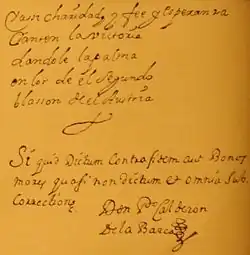 y assi charidad y fee y esperanza
Canten la victoria
dandole la palma
en lor de el segundo
blasson de el Austria
Si quid Dictum Contra fidem aut Bonos
mores quasi non dictum et omnia Sub
Correctione
Don Po Calderon
De la Barca